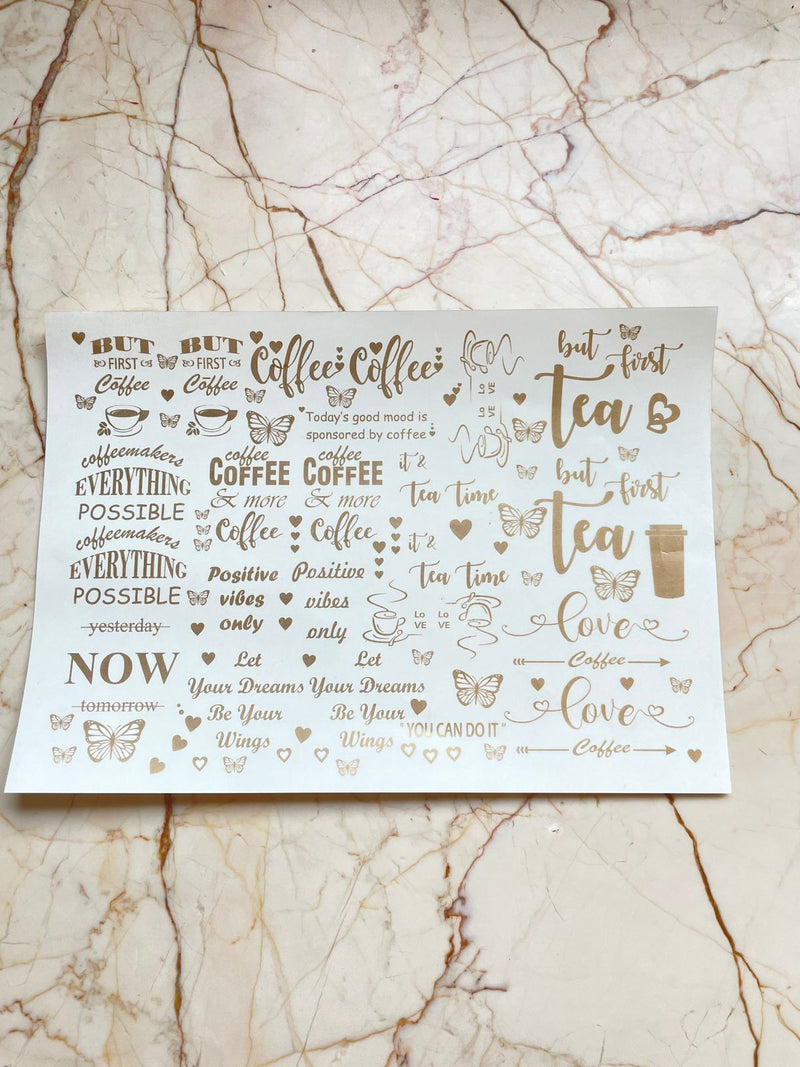 BUT
FIRST
Coffee
BUT
FIRST
Coffee
Coffee
Coffee
Today's good mood is
sponsored by coffee
but
first
tea
coffeemakers
EVERYTHING
POSSIBLE
coffee
COFFEE
& more
coffee
COFFEE
& more
it &
Tea Time
but
first
tea
coffeemakers
EVERYTHING
POSSIBLE
Coffee
Coffee
it &
Tea Time
Positive
vibes
only
Positive
vibes
only
Lo
VE
Lo
VE
love
Coffee
yesterday
NOW
tomorrow
Let
Your Dreams
Be Your
Wings
Let
Your Dreams
Be Your
Wings
"YOU CAN DO IT"
love
Coffee